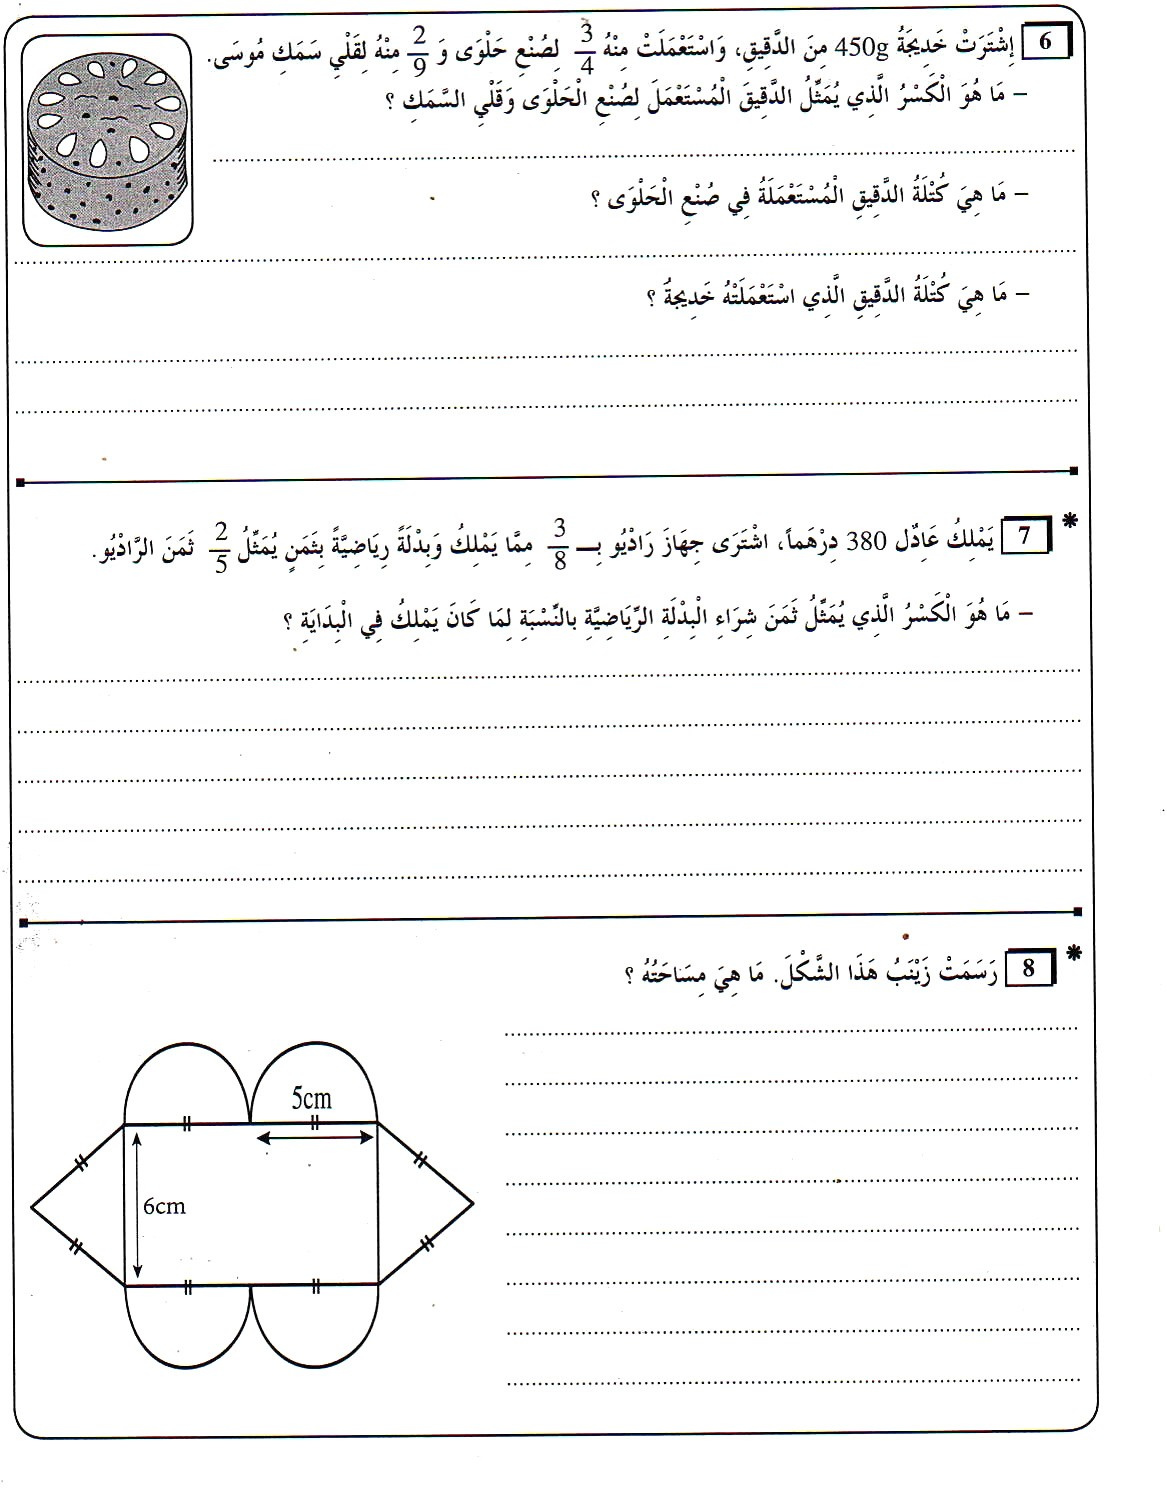 6 إِشْتَرَتْ خَدِيجَةُ 450g مِنَ الدَّقِيقِ، وَاسْتَعْمَلَتْ مِنْهُ 3/4 لِصُنْعِ حَلْوَى وَ 2/9 مِنْهُ لِقَلْيِ سَمَكِ مُوسَى.
– مَا هُوَ الْكَسْرُ الَّذِي يُمَثِّلُ الدَّقِيقَ الْمُسْتَعْمَلَ لِصُنْعِ الْحَلْوَى وَقَلْيِ السَّمَكِ ؟
– مَا هِيَ كُتْلَةُ الدَّقِيقِ الْمُسْتَعْمَلَةُ فِي صُنْعِ الْحَلْوَى ؟
– مَا هِيَ كُتْلَةُ الدَّقِيقِ الَّذِي اسْتَعْمَلَتْهُ خَدِيجَةُ ؟
* 7 يَمْلِكُ عَادِلٌ 380 دِرْهَماً، اشْتَرَى جِهَازَ رَادْيُو بِـ 3/8 مِمَّا يَمْلِكُ وَبِدْلَةً رِيَاضِيَّةً بِثَمَنٍ يُمَثِّلُ 2/5 ثَمَنَ الرَّادْيُو.
– مَا هُوَ الْكَسْرُ الَّذِي يُمَثِّلُ ثَمَنَ شِرَاءِ الْبِدْلَةِ الرِّيَاضِيَّةِ بالنِّسْبَةِ لِمَا كَانَ يَمْلِكُ فِي الْبِدَايَةِ ؟
* 8 رَسَمَتْ زَيْنَبُ هَذَا الشَّكْلَ. مَا هِيَ مِسَاحَتُهُ ؟
5cm
6cm